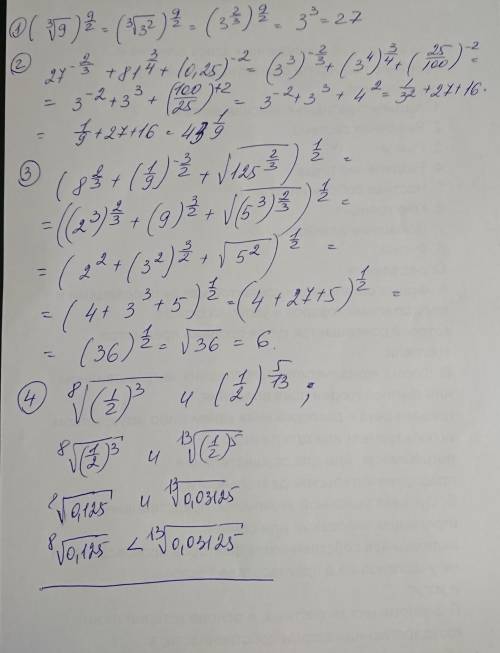 ① (∛9)^(9/2) = (∛3²)^(9/2) = (3^(2/3))^(9/2) = 3³ = 27
② 27^(-2/3) + 81^(3/4) + (0,25)^(-2) = (3³)^(-2/3) + (3⁴)^(3/4) + (25/100)^(-2) =
= 3^(-2) + 3³ + (100/25)^(+2) = 3^(-2) + 3³ + 4² = 1/3² + 27 + 16 =
= 1/9 + 27 + 16 = 43 1/9
③ (8^(2/3) + (1/9)^(-3/2) + √(125^(2/3)))^(1/2) =
= ((2³)^(2/3) + (9)^(3/2) + √((5³)^(2/3)))^(1/2) =
= (2² + (3²)^(3/2) + √(5²))^(1/2) =
= (4 + 3³ + 5)^(1/2) = (4 + 27 + 5)^(1/2) =
= (36)^(1/2) = √36 = 6.
④ ⁸√((1/2)³) и (1/2)^(5/13) ;
⁸√((1/2)³) и ¹³√((1/2)⁵)
⁸√(0,125) и ¹³√(0,03125)
⁸√(0,125) < ¹³√(0,03125)